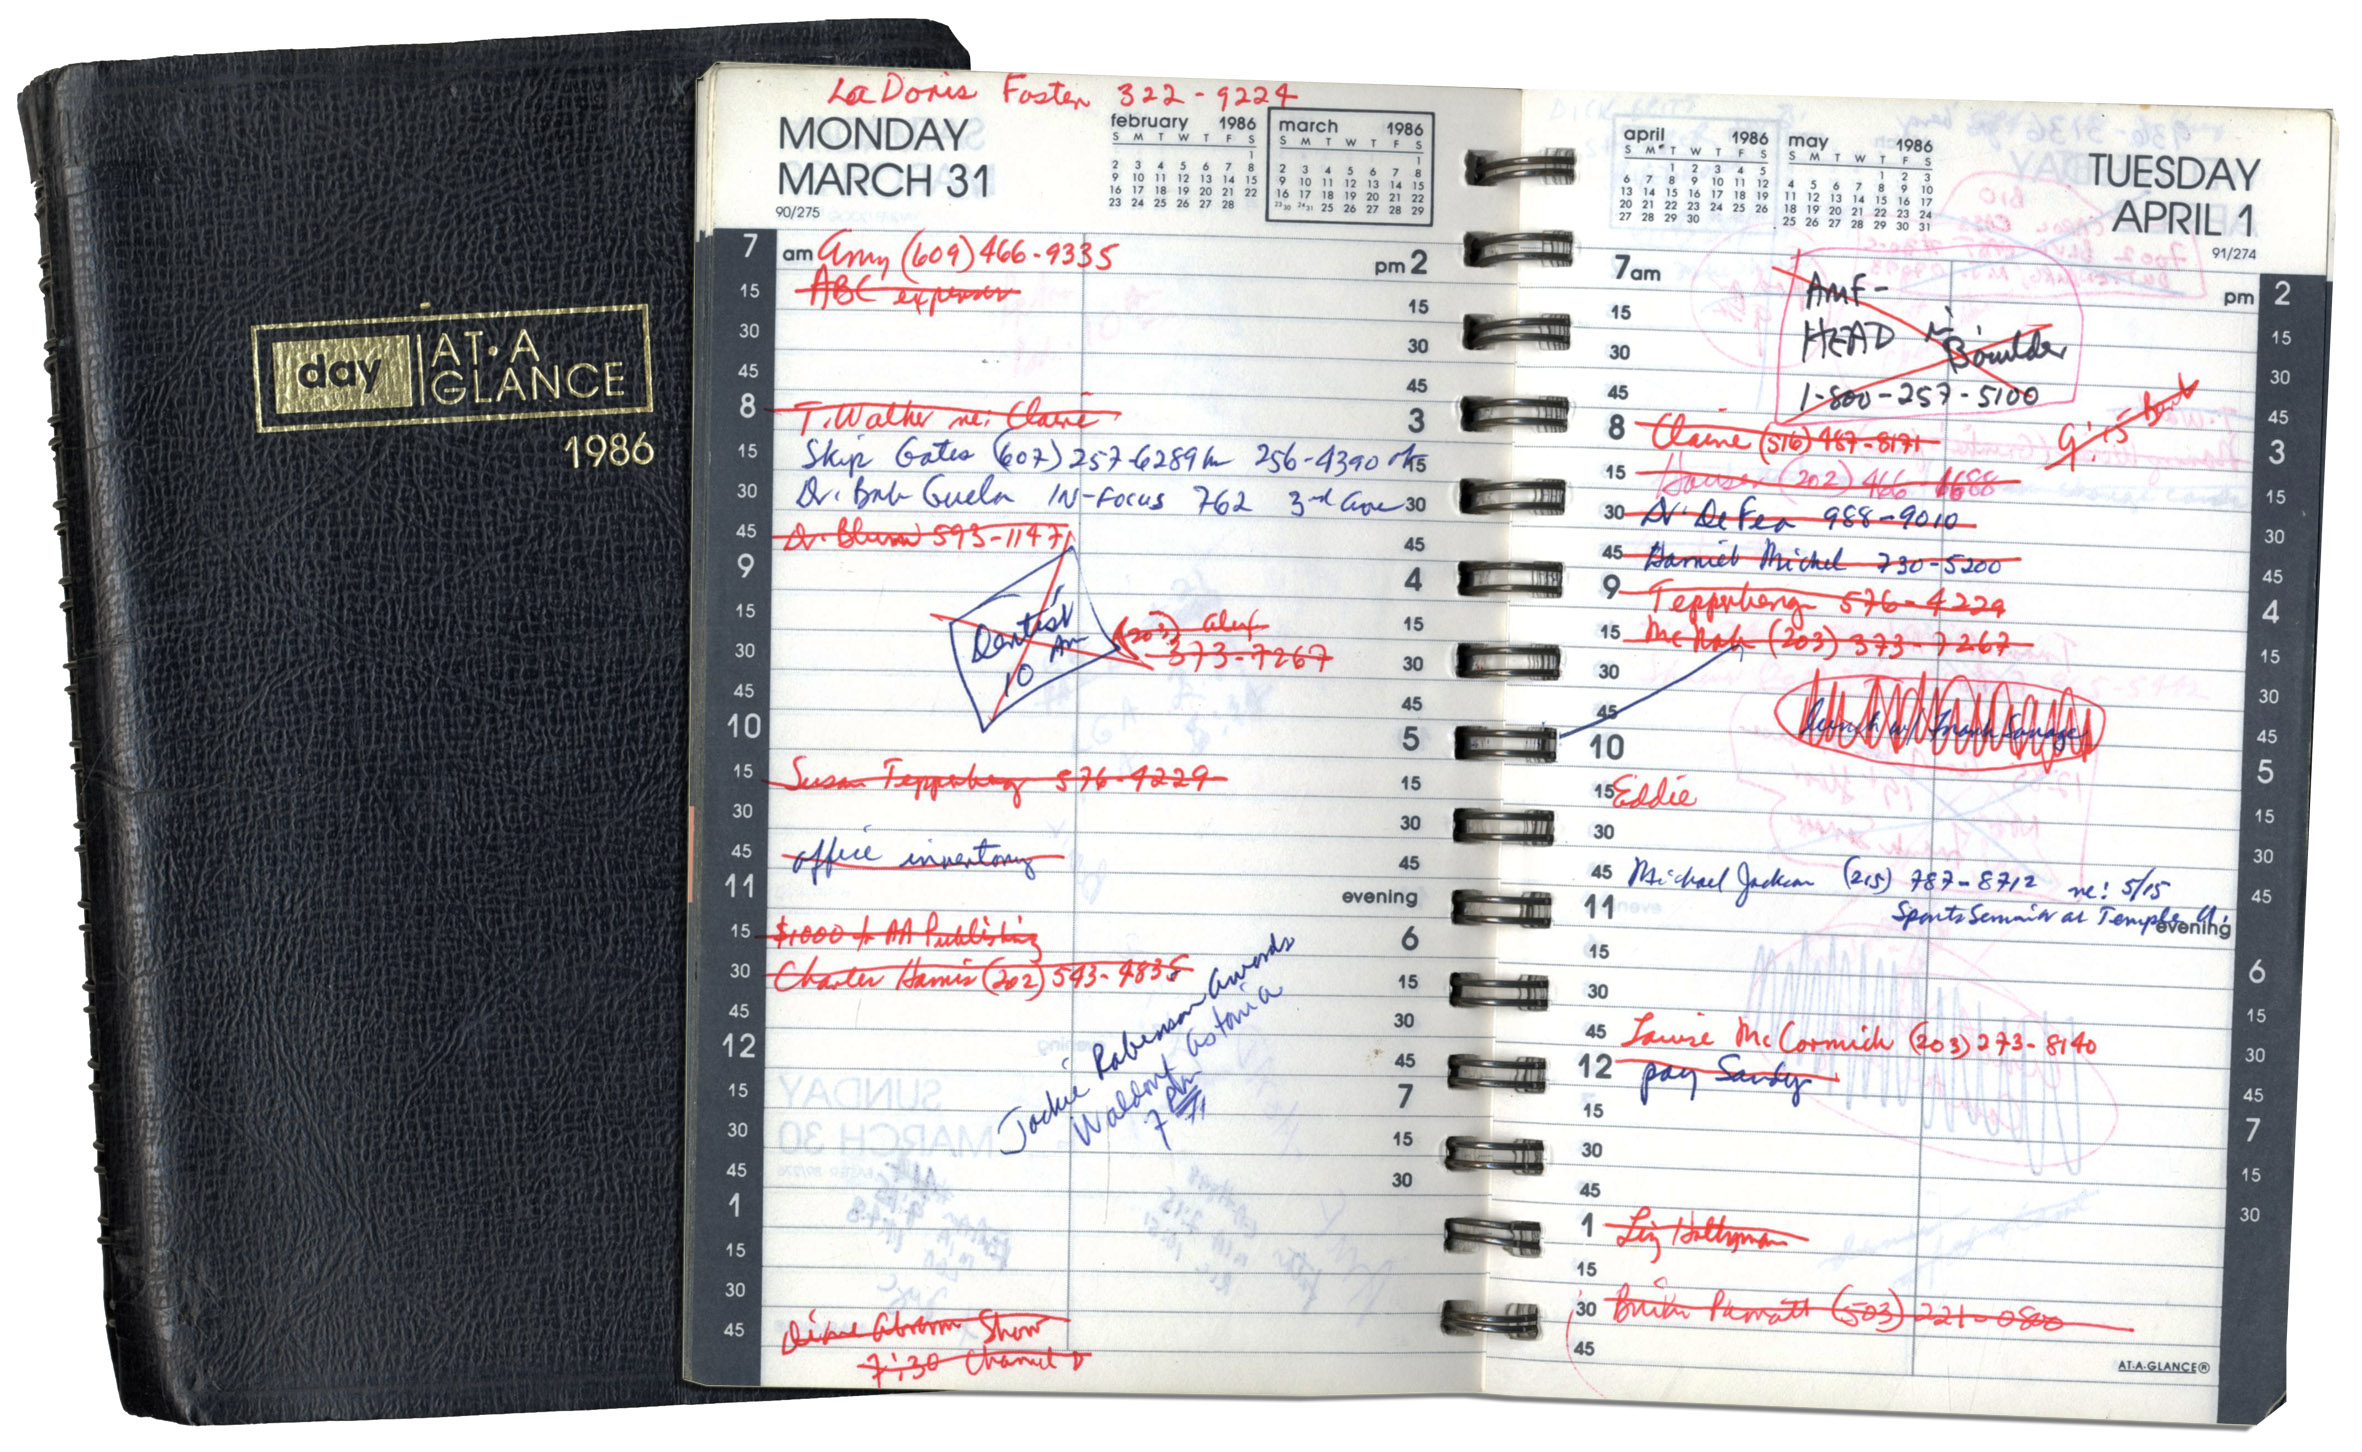 day
AT·A
GLANCE
1986
LaDoris Foster 322-9224
MONDAY
MARCH 31
90/275
february 1986
S M T W T F S
1
2 3 4 5 6 7 8
9 10 11 12 13 14 15
16 17 18 19 20 21 22
23 24 25 26 27 28
march 1986
S M T W T F S
1
2 3 4 5 6 7 8
9 10 11 12 13 14 15
16 17 18 19 20 21 22
23 30 24 31 25 26 27 28 29
7 am Amy (609) 466-9335 pm 2
15 ABC expenses 15
30 30
45 45
8 T. Walker re: Claire 3
15 Skip Gates (607) 257-6289 hm 256-4390 15
30 Dr. Bob IN-FOCUS 762 3rd Ave 30
45 Dr. Blum 593-11471 45
9 4
15 Dentist (203) Alex 15
30 10 AM 373-7267 30
45 45
10 5
15 Susan Tepperberg 576-4229 15
30 30
45 office inventory 45
11 evening
15 $1000 to AA Publishing 6
30 Charles Harris (202) 543-4835 15
45 30
12 45
Jackie Robinson Awards
Waldorf Astoria
7 PM
15 7
30 15
45 30
1
15
30
45 Diane Abrams Show
7:30 Channel D
april 1986
S M T W T F S
1 2 3 4 5
6 7 8 9 10 11 12
13 14 15 16 17 18 19
20 21 22 23 24 25 26
27 28 29 30
may 1986
S M T W T F S
1 2 3
4 5 6 7 8 9 10
11 12 13 14 15 16 17
18 19 20 21 22 23 24
25 26 27 28 29 30 31
TUESDAY
APRIL 1
91/274
7am AMF- pm 2
15 HEAD 15
30 Boulder 30
45 1-800-257-5100 45
8 Claire (516) 487-8171 9:15 3
15 Houser (202) 466-1688 15
30 Dr. DeFeo 988-9010 30
45 Harriet Michel 730-5200 45
9 Tepperberg 576-4229 4
15 McNab (203) 373-7267 15
30 30
45 lunch w/ Frank Savage 45
10 5
15 Eddie 15
30 30
45 Michael Jackson (215) 787-8712 re: 5/15 45
11 Sports Seminar at Temple U. evening
15 6
30 15
45 Louise McCormick (203) 273-8140 30
12 pay Sandy 45
15 7
30 15
45 30
1 Liz Holtzman
15
30 Brian (503) 221-080
45
AT-A-GLANCE®